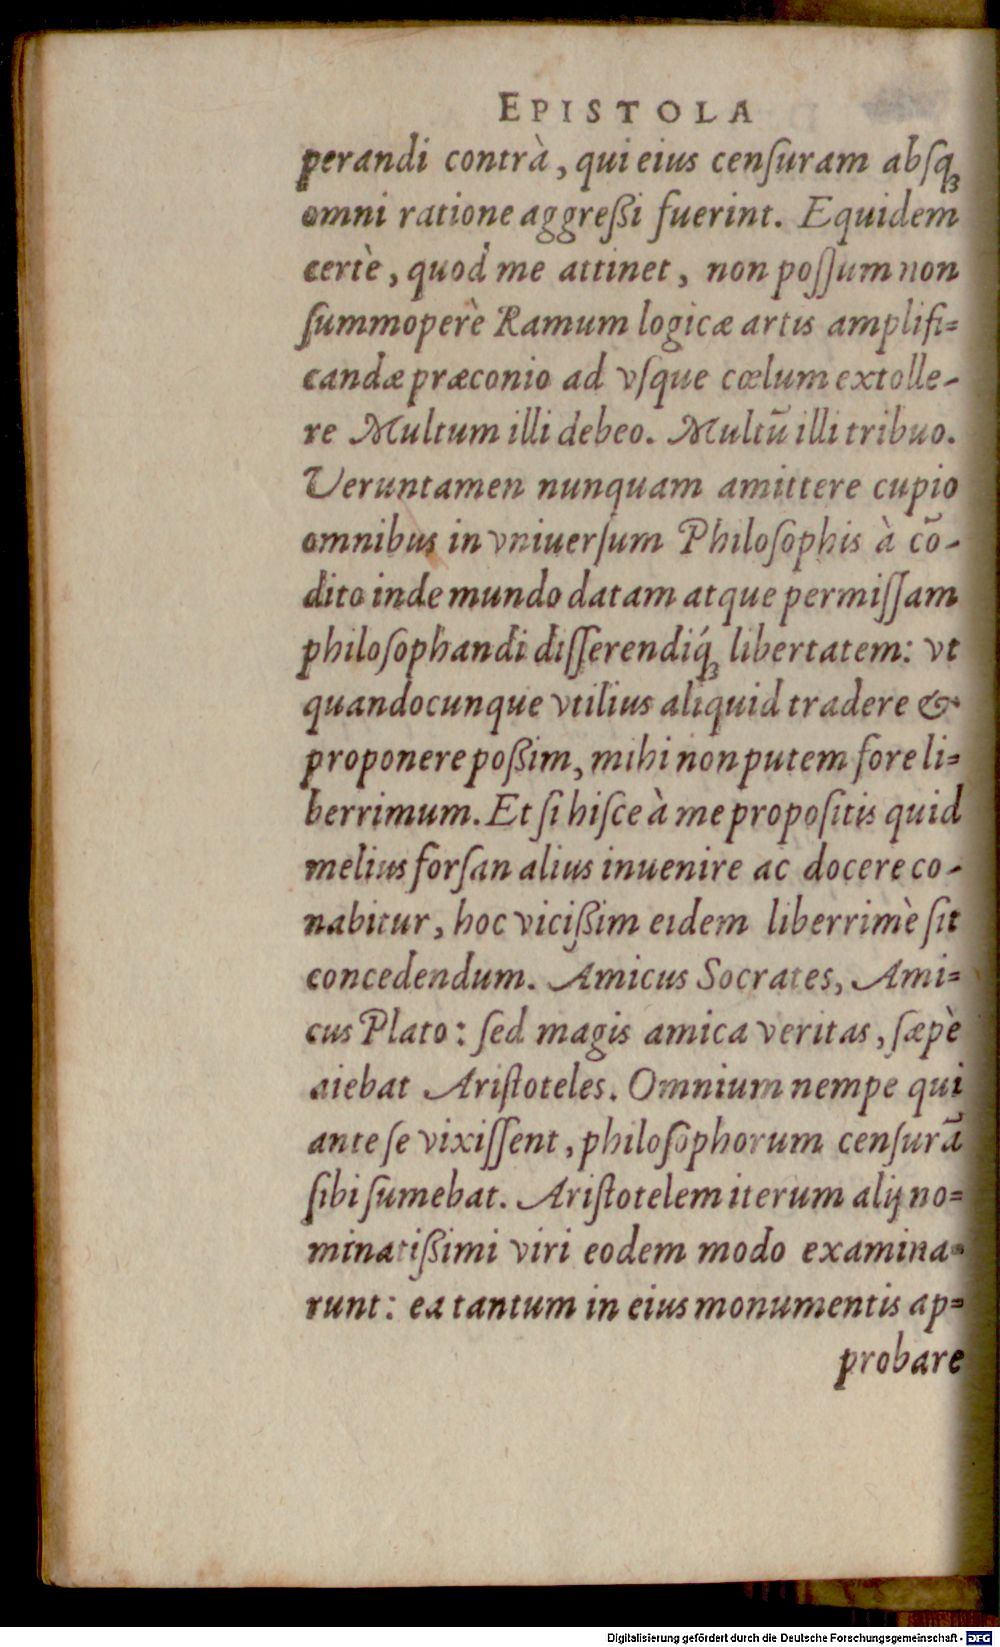 EPISTOLA
perandi contrà, qui eius cenſuram abſq́ꝫ
omni ratione aggreßi fuerint. Equidem
certè, quod me attinet, non poſſum non
ſummoperè Ramum logicæ artis amplifi=
candæ præconio ad vſque cœlum extolle-
re Multum illi debeo. Multū illi tribuo.
Veruntamen nunquam amittere cupio
omnibus in vniuerſum Philoſophis à cō-
dito inde mundo datam atque permiſſam
philoſophandi diſſerendiq́ꝫ libertatem: vt
quandocunque vtilius aliquid tradere &
proponere poßim, mihi non putem fore li=
berrimum. Et ſi hiſce à me propoſitis quid
melius forſan alius inuenire ac docere co-
nabitur, hoc vicißim eidem liberrimè ſit
concedendum. Amicus Socrates, Ami=
cus Plato: ſed magis amica veritas, ſæpè
aiebat Ariſtoteles. Omnium nempe qui
ante ſe vixiſſent, philoſophorum cenſurā
ſibi ſumebat. Ariſtotelem iterum alij no=
minatißimi viri eodem modo examina=
runt: ea tantum in eius monumentis ap=
probare
Digitalisierung gefördert durch die Deutsche Forschungsgemeinschaft - DFG